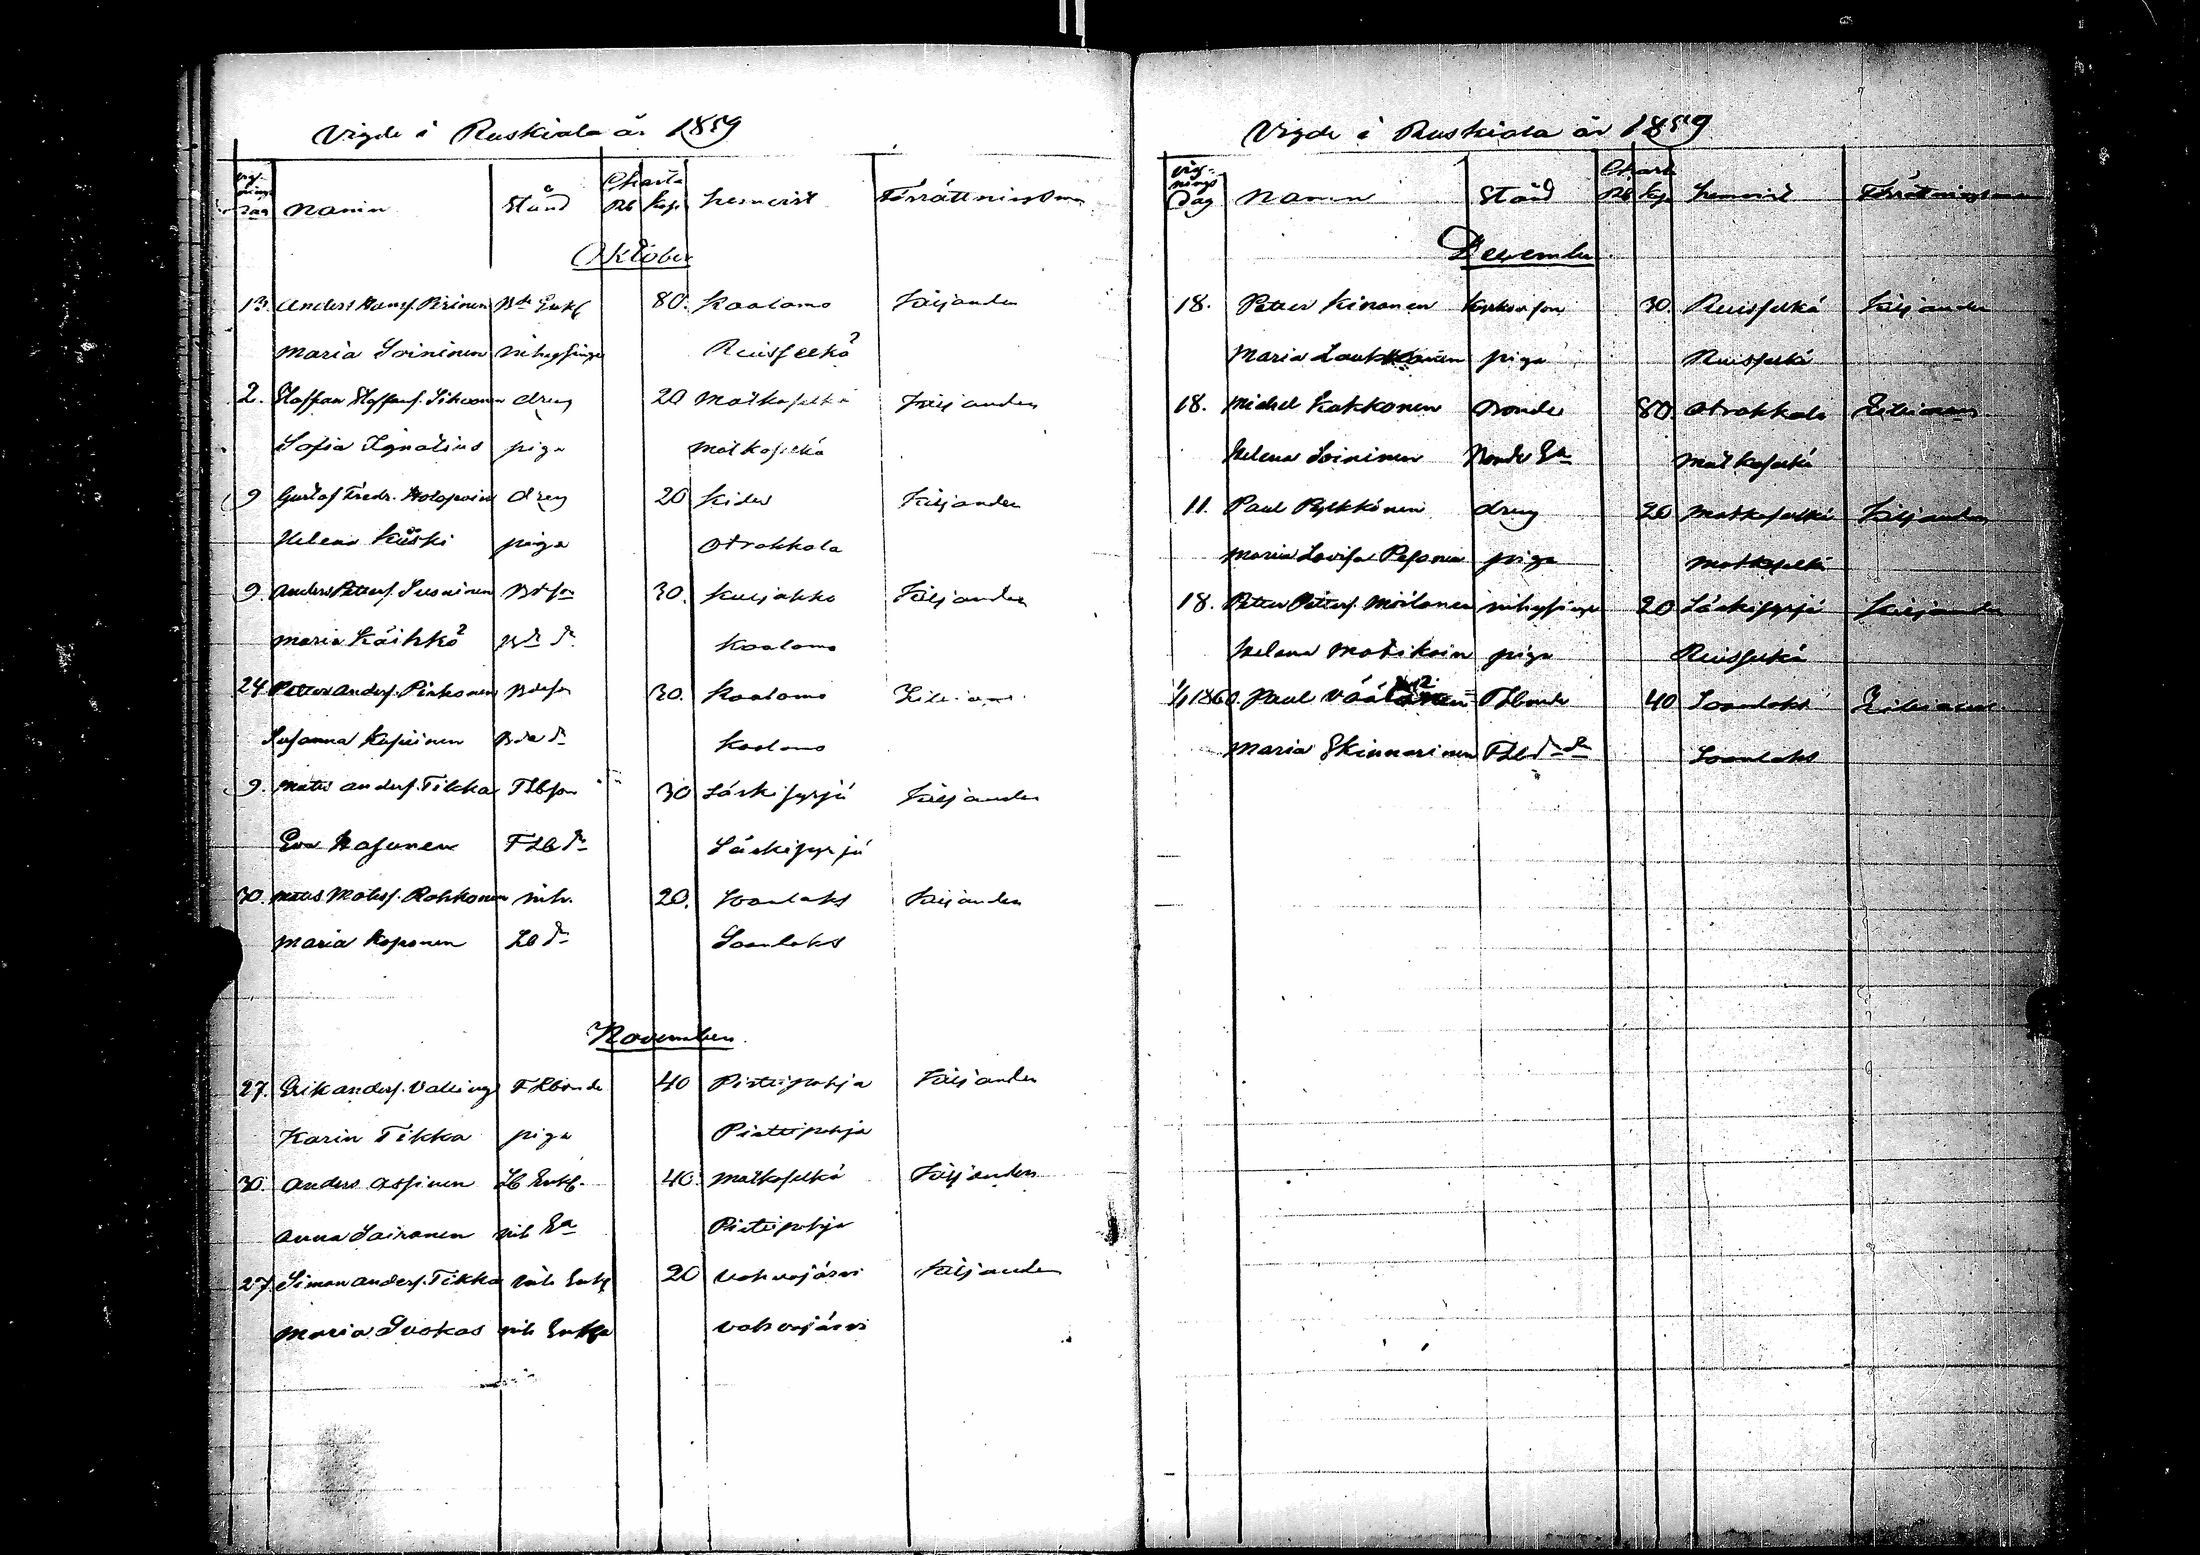 Vigde i Ruskiala år 1859
Vigningsdag Namn Stånd Charta Rb Kop hemvist Förrättningsman
Oktober
13. Anders Hansf. Pirinen Bde Enkl 80. Kaalamo Kiljander
Maria Soininen inhysinge Ruisselkä
2. Staffan Staffansf. Sihvonen dreng 20 Matkaselkä Kiljander
Sofia Ignatius piga Matkaselkä
9 Gustaf Fredr. Holopain dreng 20 Kides Kiljander
Helena Kuski piga Otrakkala
9. Anders Pettersf. Susninen Bdeson 30. Kuljakko Kiljander
Maria Käihkö Bde dr Kaalamo
24. Petter Andersf. Pirhonen Bdeson 30. Kaalamo
Susanna Kupiinen Bde dr Kaalamo
9. Mats Andersf. Tikka FLbson 30 Läskisyrjä Kiljander
Eva Hasunen FLb dr Läskisyrjä
30. Mats Matsf. Rahkonen inh. 20. Soanlaks Kiljander
Maria Koponen Lb dr Soanlaks
November
27. Erik Andersf. Valling FLbonde 40 Pirttipohja Kiljander
Karin Tikka piga Pirttipohja
30. Anders Assinen Lb Enkl. 40. Matkaselkä Kiljander
Anna Sairanen inh Ea Pirttipohja
27. Simon Andersf. Tikka inh Enkl 20 Vahvajärvi Kiljander
Maria Suokas inh Enka Vahvajärvi
Vigde i Ruskiala år 1859
Vigningsdag Namn Stånd Chart Rb Kop hemvist Förrättningsman
December
18. Petter Kinanen 30. Ruisselkä Kiljander
Maria piga Ruisselkä
18. Michel Kakkonen Bonde 80. Otrakkala
Helena Soininen Bonde Ea Matkaselkä
11. Paul Pylkkönen dreng 20 Matkaselkä Kiljander
Maria Lovisa Pesonen piga Matkaselkä
18. Petter Pettersf. Moilanen inhysinge 20 Läskisyrjä Kiljander
Helena Matikain piga Ruisselkä
1/1 1860. Paul FLbonde 40 Soanlaks
Maria Skinnarinen FLb dr Soanlaks